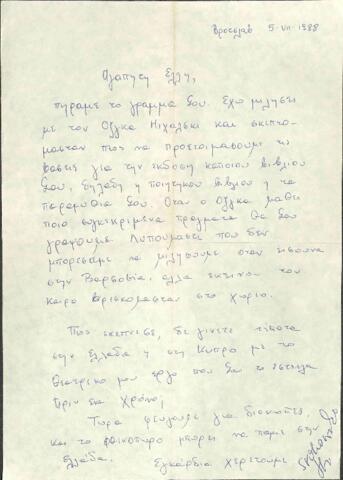 Βροτσλάβ 5-VII-1988
Αγαπητη Ελλη,
πηραμε το γραμμα σου. Εχω μιλησει
με τον Ολγκα Μιχαλσκι και σκεπτο-
μασταν πως να προετοιμασουμε τις
βασεις για την εκδοση καποιου βιβλιου
σου, δηλαδη η ποιητικου βιβλιου η τα
παραμυθια σου. Οταν ο Ολγκα μαθει
πιο συγκεκριμενα πραγματα θα σου
γραψουμε. Λυπουμαστε που δεν
μπορεσαμε να μιλησουμε οταν εισουνα
στην Βαρσοβια, αλλα εκεινον τον
καιρο βρισκομασταν στο χωριο.
Πως σκεπτεσε, δε γινετε τιποτα
στην Ελλαδα η στη Κυπρο με το
θεατρικο μου εργο που σου το εστειλα
πριν ενα χρονο;
Τωρα φευγουμε για διακοπες,
και το φθινοπωρο μπορει να παμε στην
Ελλαδα. Εγκαρδια χερετουμε